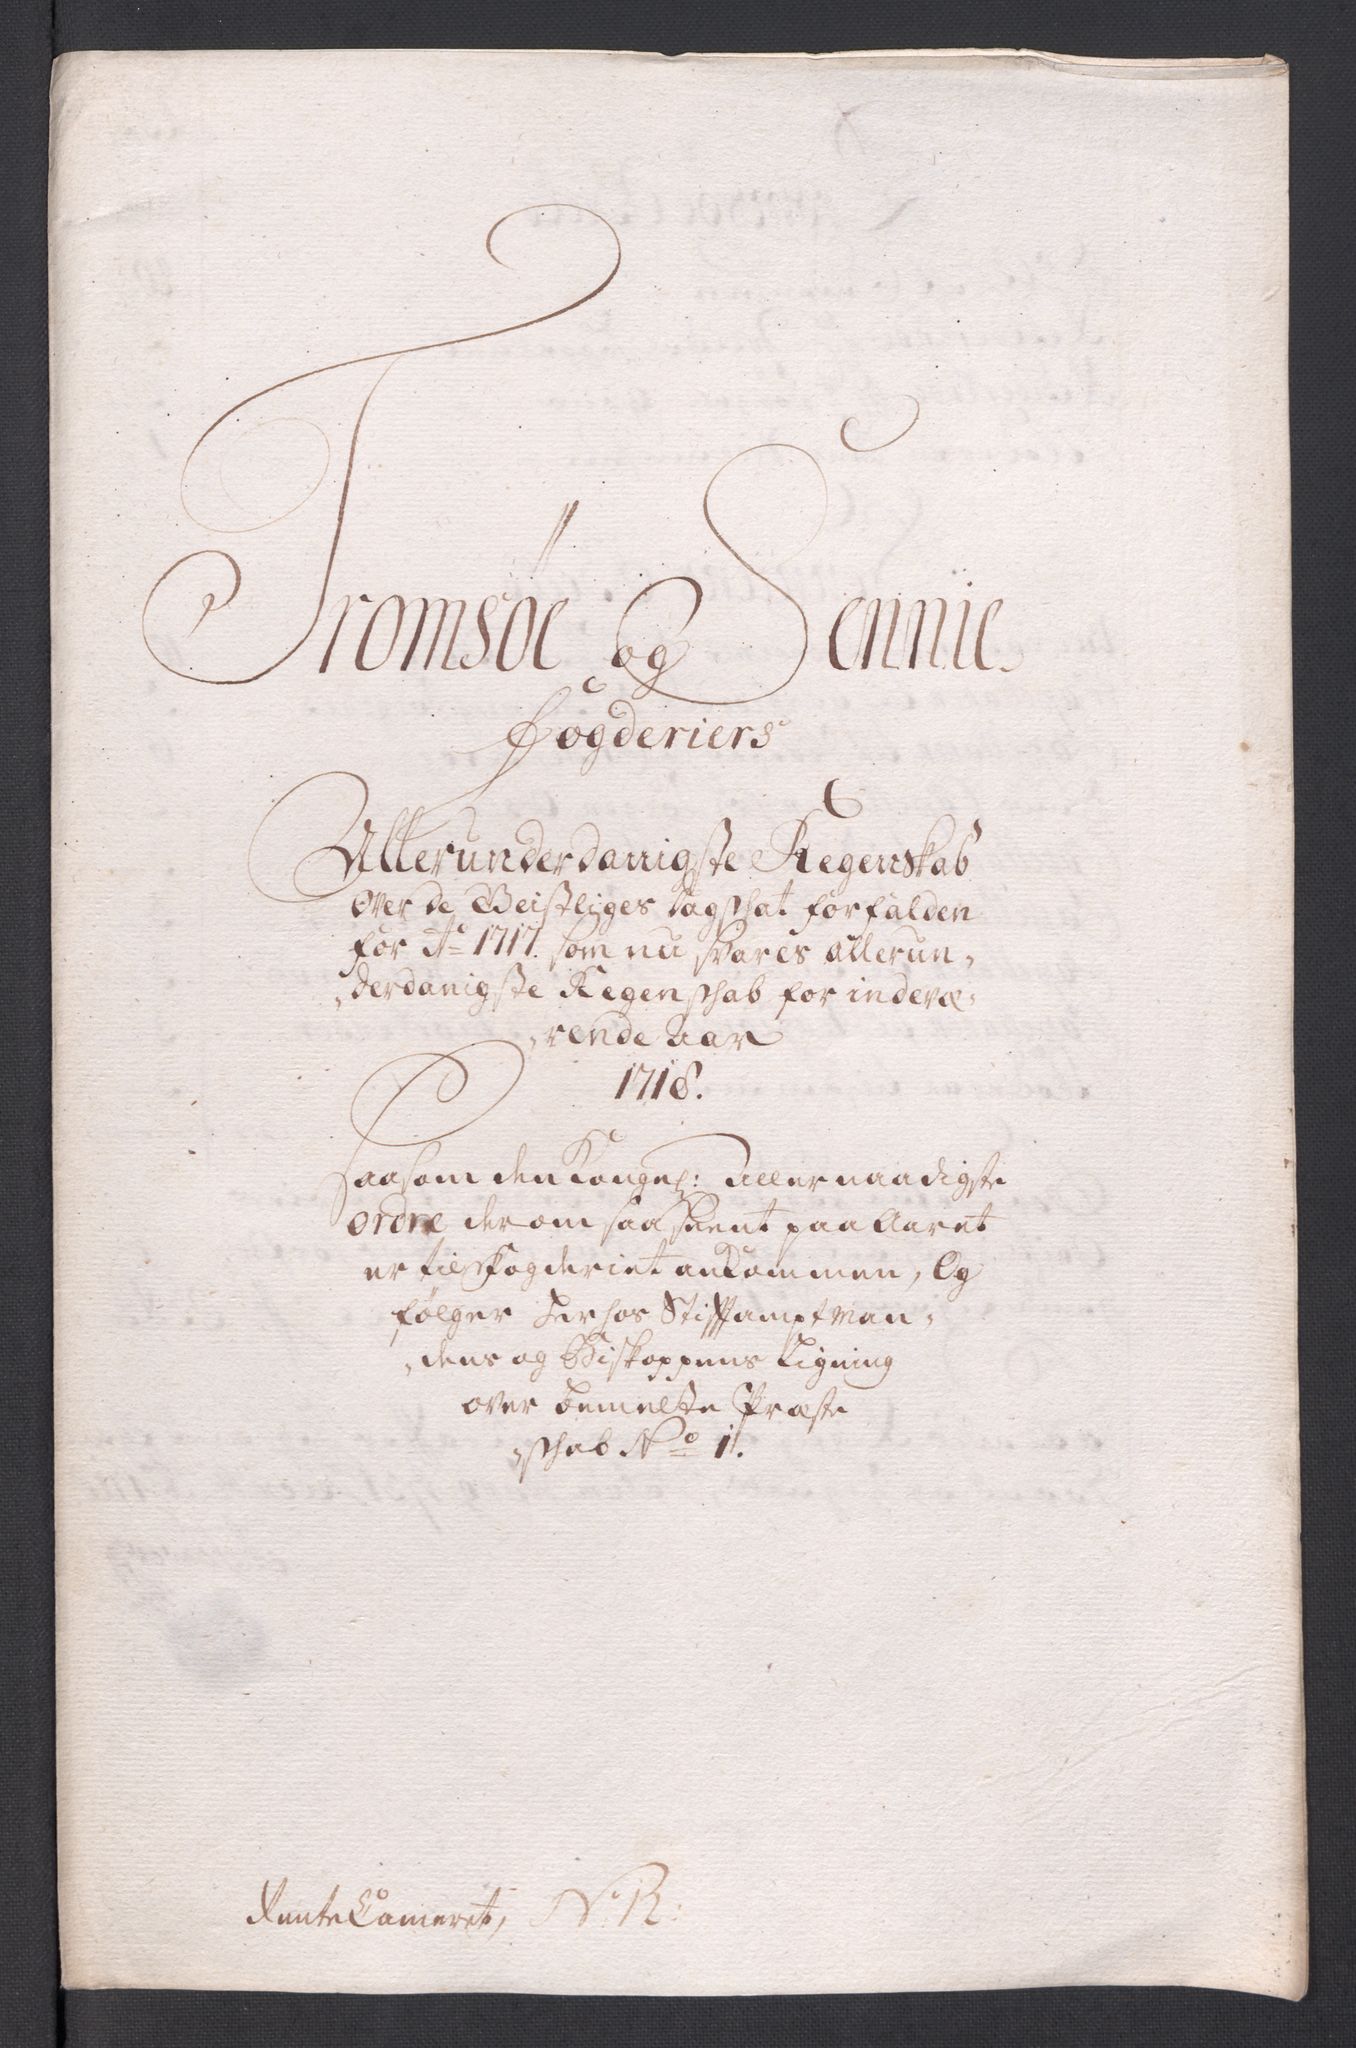 Tromsøe og Sennie
fogderiers
Allerunderdanigste Regenskab
over de Geistliges dagskat forfalden
for Ao 1717. som nu svares allerun,
,derdanigste Regenskab for indevæ,
,rende Aar
1718.
saasom den Kongel: allernaadigste
ordre derom saa sient paa Aaret
er til Fogderiet ankommen, Og
følger herhos Stiftamptman,
,dens og Biskoppens Ligning
over bemelte Præste
,skab No 1.
Rente Cameret, N: R: